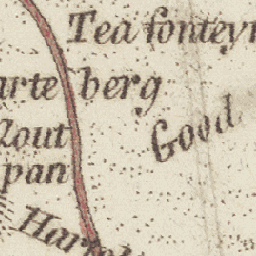 Tea fonteyn
arte berg
Good
Zout
pan
Har